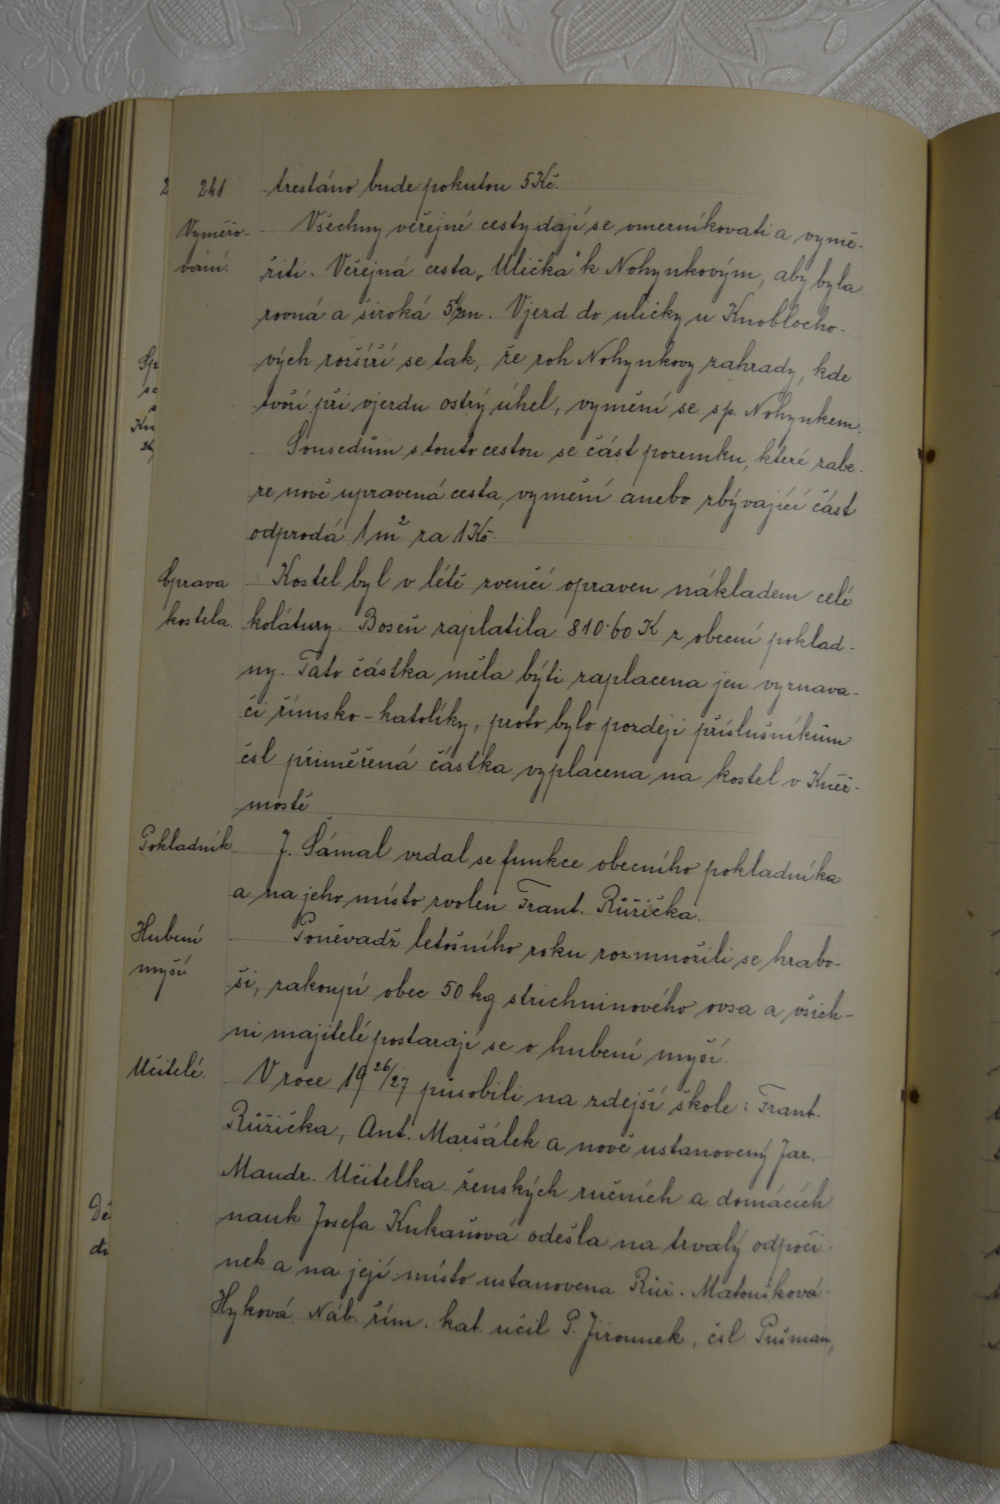 241 trestáno bude pokutou 5 Kč.
Vyměřo- Všechny veřejné cesty dají se omerníkovati a vymě-
vání. řiti. Veřejná cesta „Ulička" k Nohynkovým, aby byla
rovná a široká 5½m. Vjezd do uličky u Knoblocho-
vých rozšíří se tak, že roh Nohynkovy zahrady, kde
tvoří při vjezdu ostrý úhel, vymění se s p. Nohynkem.
Sousedům s touto cestou se část pozemku, které zabe-
re nově upravená cesta, vymění anebo zbývající část
odprodá 1 m² za 1 Kč.
Oprava Kostel byl v létě zvenčí opraven nákladem celé
kostela. kolátury. Boseň zaplatila 810·60 K z obecní poklad-
ny. Tato částka měla býti zaplacena jen vyznava-
či římsko-katolíky, proto bylo pozdeji příslušníkům
čsl přiměřená částka vyplacena na kostel v Kněž-
mostě
Pokladník J. Šámal vzdal se funkce obecního pokladníka
a na jeho místo zvolen Frant. Růžička.
Hubení Poněvadž letošního roku rozmnožili se hrabo-
myší ši, zakoupí obec 50 kg strichninového ovsa a všich-
ni majitelé postarají se o hubení myší.
Učitelé. V roce 19 26/27 působili na zdejší škole: Frant.
Růžička, Ant. Maršálek a nově ustanovený Jar.
Maudr. Učitelka ženských ručních a domácích
nauk Josefa Kukaňová odešla na trvalý odpoči-
nek a na její místo ustanovena Růž. Matoušková-
Hyková. Náb. řím. kat. učil P. Jirounek, čsl Pušman,